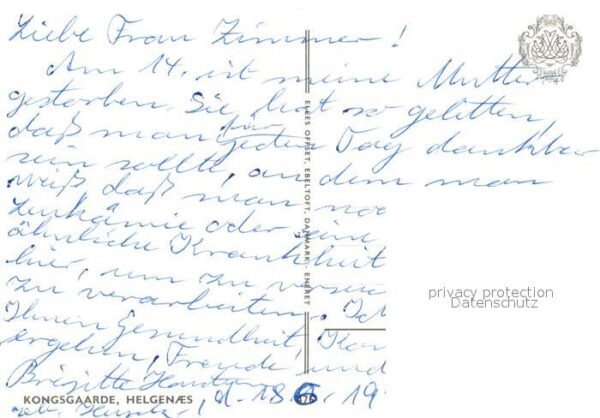 Liebe Frau Zimmer!
Am 14. ist meine Mutter
gestorben. Sie hat so gelitten,
daß man für jeden Tag dankbar
sein sollte, an dem man
weiß daß man
Leukämie oder eine
ähnliche Krankheit
hier, um zu
zu verarbeiten.
Ihnen Gesundheit,
ergehen, Freude und
Brigitte
d. 18.6.19
ELKES OFFSET, EBELTOFT, DANMARK - ENERET
privacy protection
Datenschutz
KONGSGAARDE, HELGENÆS